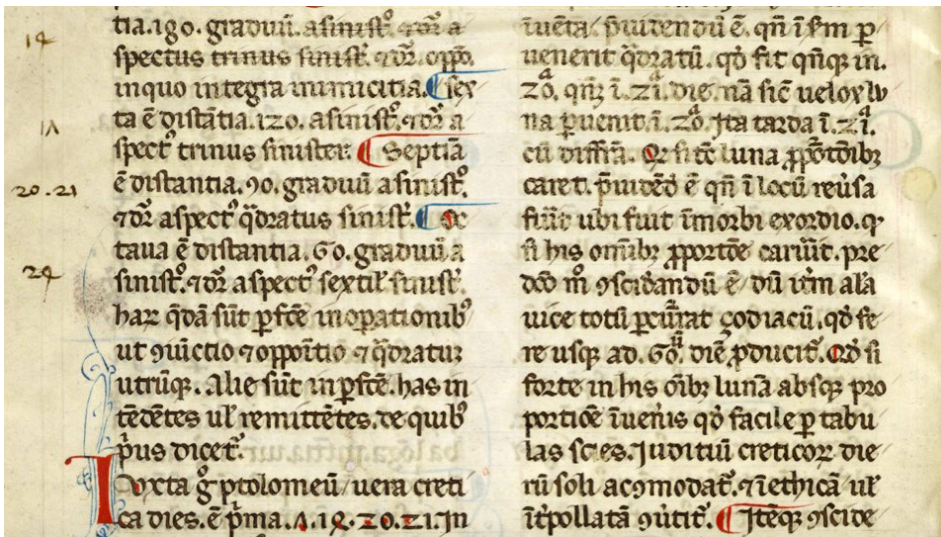 14
tia. 180. graduū. a sinistꝰ. ⁊ dr̄ a
spectus trinus sinistꝰ. ⁊ dr̄. oppo.
in quo integra inimicitia. ¶ Sex
ta ē distātia. 120. a sinistꝰ. ⁊ dr̄ a
spectꝰ trinus sinister. ¶ Septīa
ē distantia. 90. graduū a sinistꝰ.
20.21
⁊ dr̄ aspectꝰ q̄dratus sinistꝰ. ¶ Oc
taua ē distantia. 60. graduū a
24
sinistꝰ. ⁊ dr̄ aspectꝰ sextil' sinistꝰ.
haꝝ q̄dā sūt ꝑfcē in oꝑationibꝰ
ut ꝯiūctio ⁊ oppōitio ⁊ q̄dratuꝝ
utrūqꝫ. Alie sūt inꝑfcē. has in
tēdētes ul' remittētes. de quibꝰ
pͥus dicetꝰ.
Ioxta gͦ ptolomeū uera creti
ca dies. ē pͥma. 20. 21. In
īuēta. p̄uidendū ē. qn̄ ī
uenerit q̄dratū. qd̓ fit qn̄qꝫ in.
20. qn̄qꝫ ī. 21. die. nā sic̄ uelox lu
na ꝑuenit. ī. 20. Ita tarda ī. 21.
cū diffrīa. luna ꝓpōtōibꝫ
caret. p̄uidēd̓ ē qn̄ ī locū reūsa
fūīt ubi fuit ī morbi exordio. qꝫ
si his om̄ibꝫ ꝓportōe cariūīt. pre
dc̄o mͦ ꝯsid̓andū ē dū itm̄ alā
uice totū ꝑcūrat ȝodiacū. qd̓ fe
re usqꝫ ad. 60. diē ꝓducitꝰ. Qd̓ si
forte in his oībꝫ lunā absqꝫ pro
portiōe īuen̄is qd̓ facile ꝑ tabu
las scies. Juditiū creticoꝝ die
rū soli acꝯmodatꝰ. ⁊ ī ethicā ul'
īt̓pollatā ꝯūtitꝰ. ¶ Itēqꝫ ꝯside